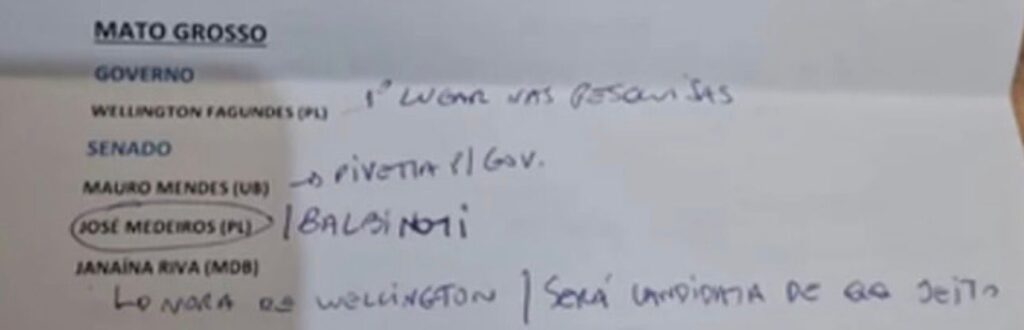 MATO GROSSO
GOVERNO
WELLINGTON FAGUNDES (PL) 1º LUGAR NAS PESQUISAS
SENADO
MAURO MENDES (UB) → PIVETTA P/ GOV.
JOSÉ MEDEIROS (PL) / BALBINOTI
JANAÍNA RIVA (MDB)
↳ NORA DE WELLINGTON / SERÁ CANDIDATA DE QQ JEITO